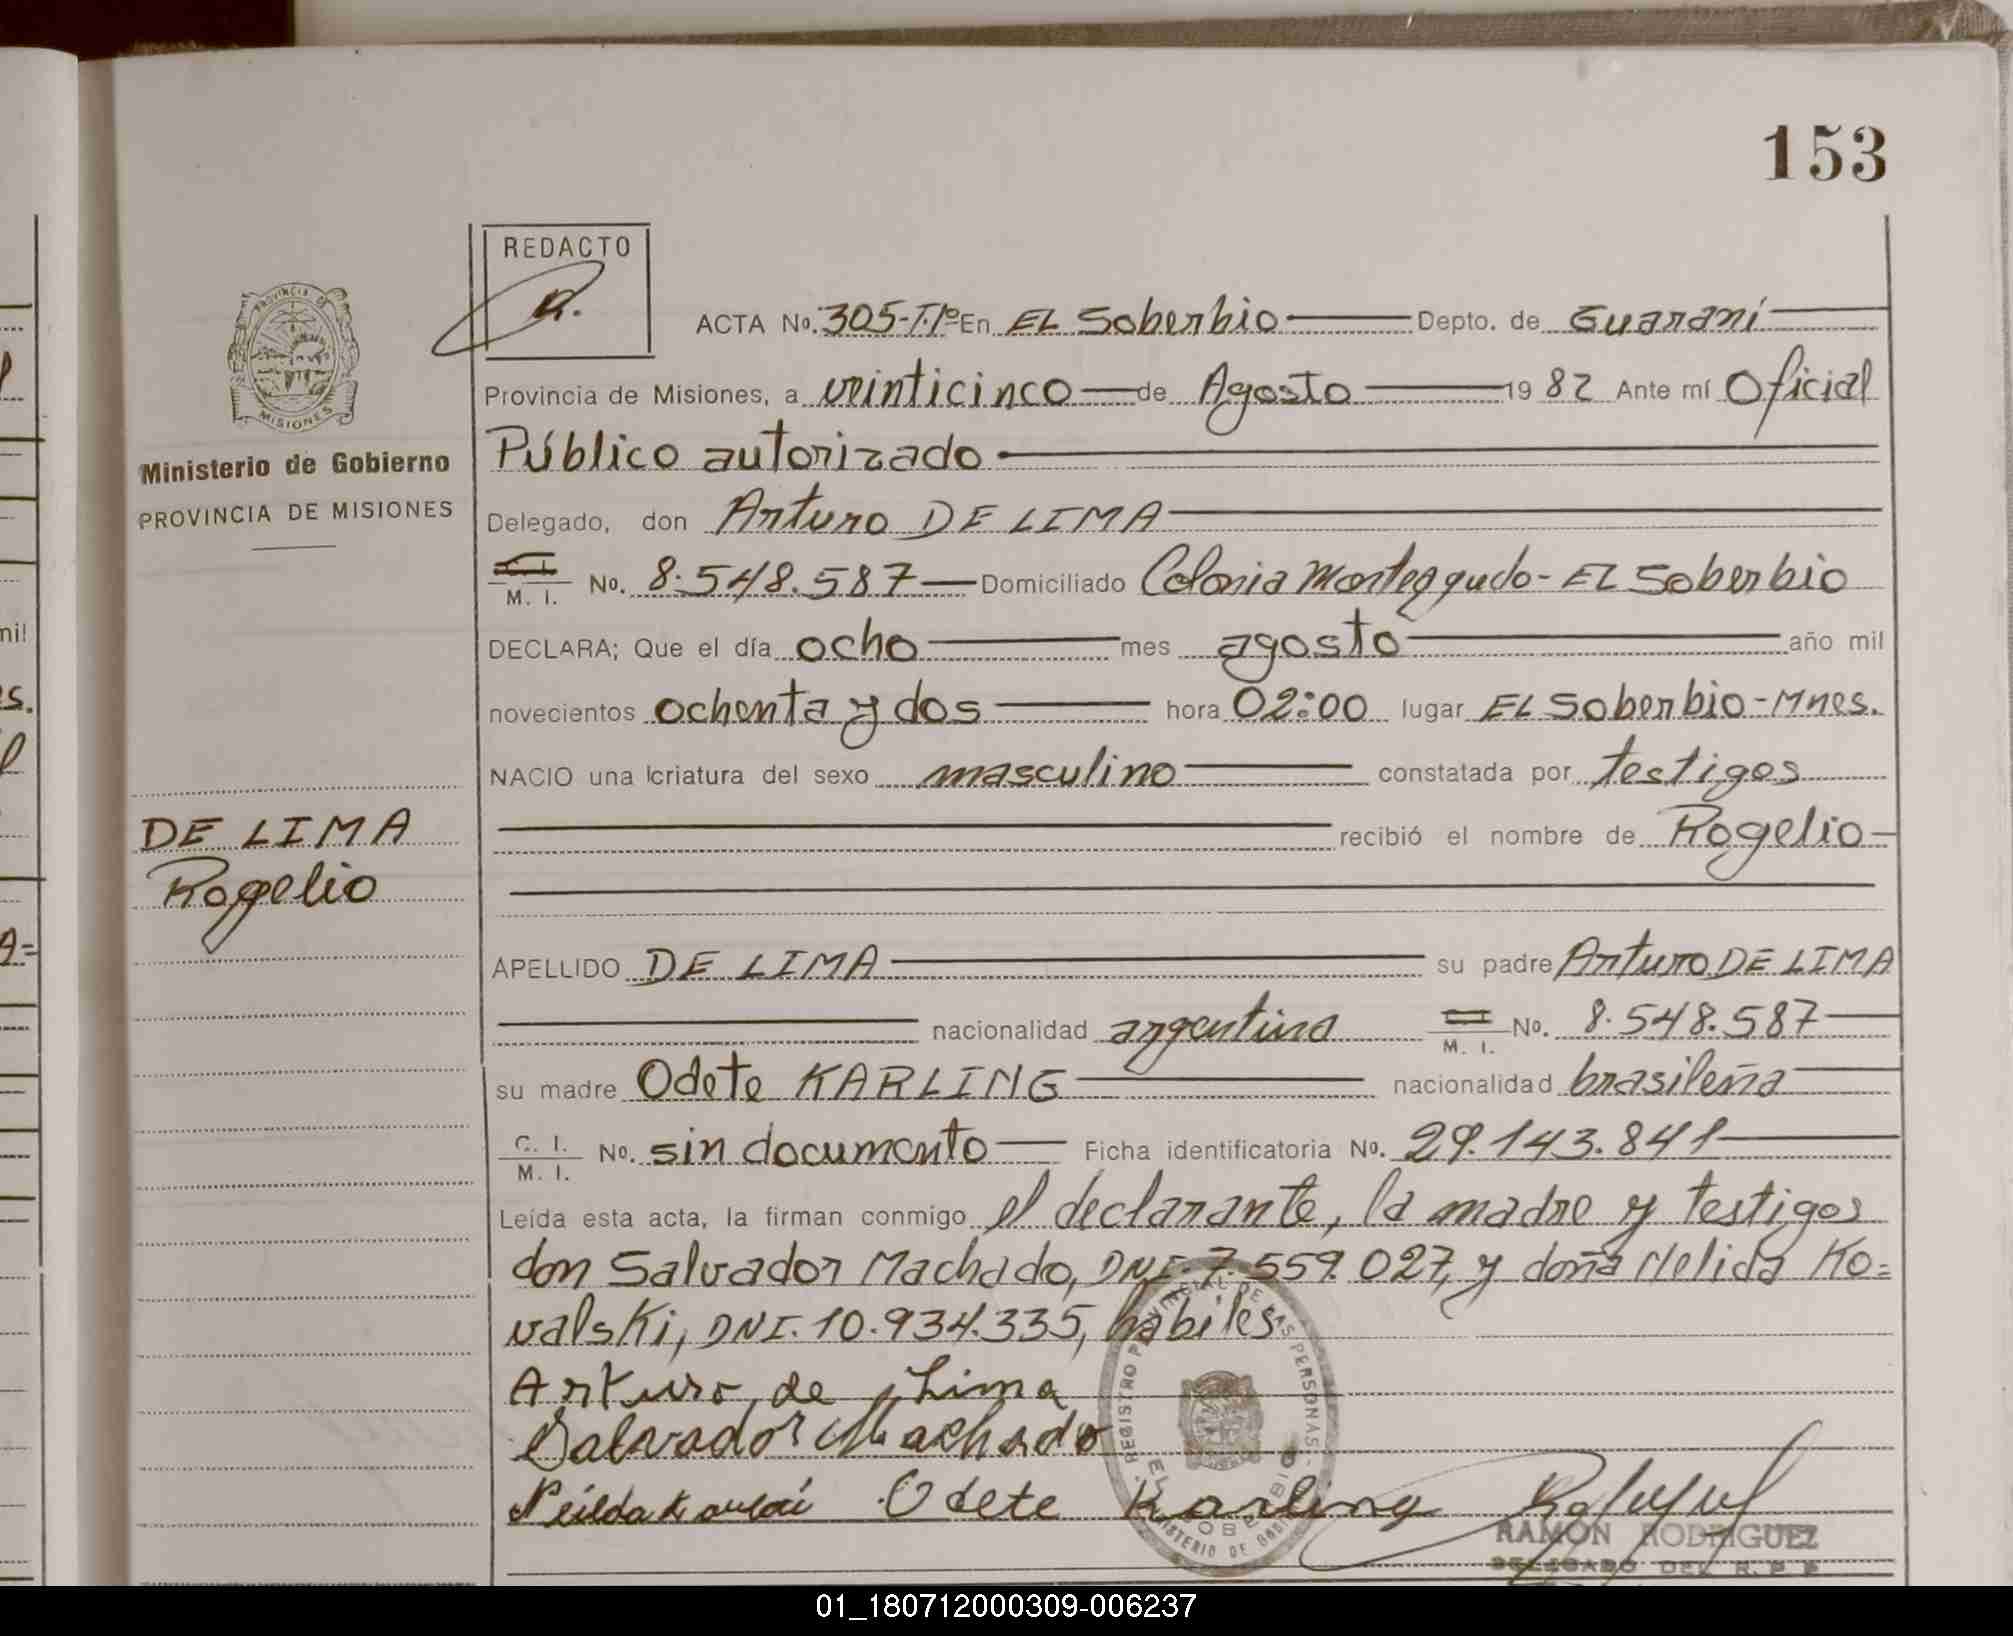 153
REDACTO
PROVINCIA DE
MISIONES
ACTA No. 305-T.1º En EL Soberbio Depto. de Guaraní
Provincia de Misiones, a veinticinco de Agosto 1982 Ante mí Oficial
Público autorizado
Ministerio de Gobierno
PROVINCIA DE MISIONES
Delegado, don Arturo DE LIMA
M. I. No. 8.548.587 Domiciliado Colonia Monteagudo - EL Soberbio
DECLARA; Que el día ocho mes agosto año mil
novecientos ochenta y dos hora 02:00 lugar EL Soberbio - Mnes.
NACIO una criatura del sexo masculino constatada por testigos
DE LIMA
Rogelio
recibió el nombre de Rogelio
APELLIDO DE LIMA su padre Arturo DE LIMA
nacionalidad argentina M. I. No. 8.548.587
su madre Odete KARLING nacionalidad brasileña
C. I. M. I. No. sin documento Ficha identificatoria No. 29.143.841
Leída esta acta, la firman conmigo el declarante, la madre y testigos
don Salvador Machado, DNI. 7.559.027, y doña Nelida Ko=
valski, DNI. 10.934.335, habiles
Arturo de Lima
Salvador Machado
Odete Karling
REGISTRO PROVINCIAL DE LAS PERSONAS
EL SOBERBIO
MINISTERIO DE GOBIERNO
RAMON RODRIGUEZ
DELEGADO DEL R. P. P.
01_180712000309-006237